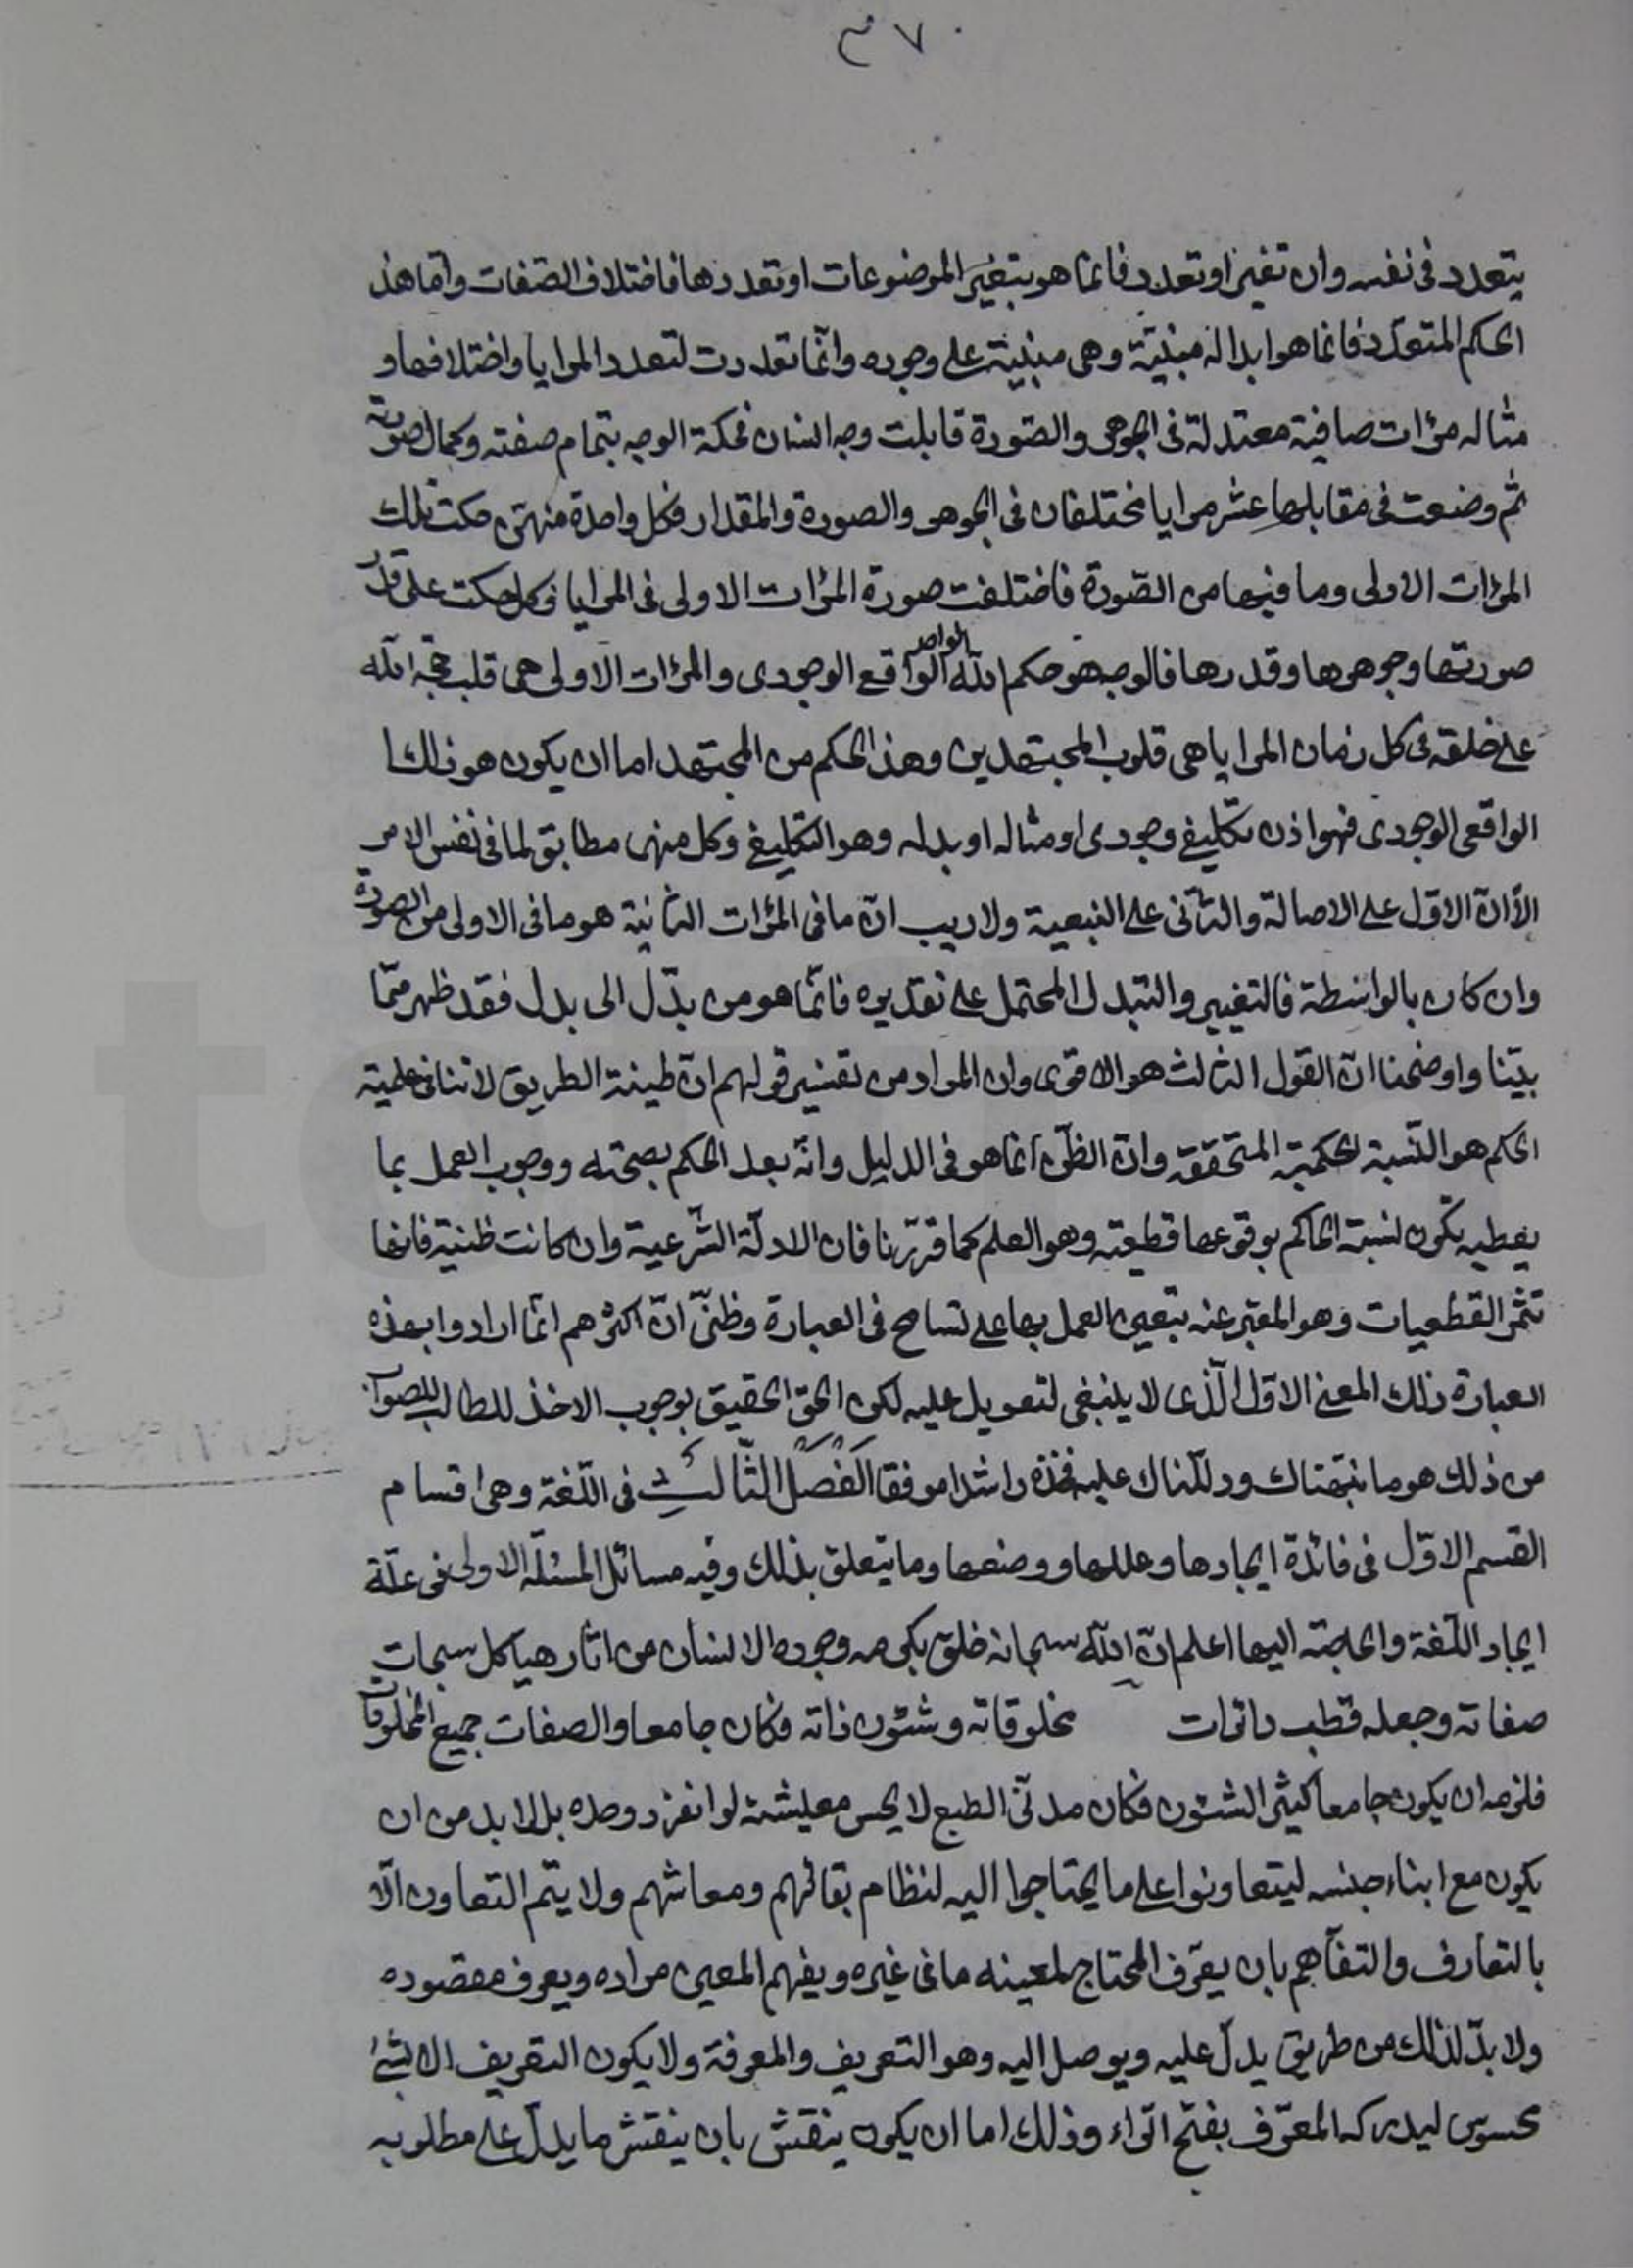 ٣٧٠
يتعدد فى نفسه وان تغير او تعدد فانما هو بتغير الموضوعات او تعددها فاختلاف الصفات واما هذ
الحكم المتعدد فانما هو ابداله مبنيّة وهى مبنية على وجوده وانّما تعددت لتعدد المرايا واختلافها و
مثاله مرآت صافية معتدلة فى الجوهر والصّورة قابلت وجه انسان فحكة الوجه بتمام صفته وكمال صورته
ثم وضعت فى مقابلها عشر مرايا مختلفات فى الجوهر والصورة والمقدار وكل واحدة منهنّ حكت تلك
المرآت الاولى وما فيها من الصّورة فاختلفت صورة المرآت الاولى فى المرايا فكل حكت على قدر
صورتها وجوهرها وقدرها فالوجه هو حكم الله الواحد الواقع الوجودى والمرآت الاولى هى قلب حجة الله
على خلقه فى كل زمان المرايا هى قلوب المجتهدين وهذا الحكم من المجتهد اما ان يكون هو ذلك ا
الواقعى الوجودى فهو اذن تكليفى وجودى او مثاله او بدله وهو التكليفى وكل منهن مطابق لما فى نفس الامر
الّا انّ الاوّل على الاصالة والثانى على التبعية ولا ريب انّ ما فى المرآت الثانية هو ما فى الاولى من الصورة
وان كان بالواسطة فالتغيير والتبدل المحتمل على تقديره فانّما هو من بدل الى بدل فقد ظهر ممّا
بيّنا واوضحنا انّ القول الثالث هو الاقوى وان المراد من تفسير قولهم انّ ظنية الطريق لا تنافى علمية
الحكم هو النّسبة الحكمية المتحققة وانّ الظّن انما هو فى الدليل وانّه بعد الحكم بصحته ووجوب العمل بما
يعطيه تكون نسبة الحاكم بوقوعها قطعية وهو العلم كما قرّرنا فان الادلّة الشّرعية وان كانت ظنية فانها
تثمر القطعيات وهو المعبّر عنه بتعين العمل بها على تسامح فى العبارة وظنّى انّ اكثرهم انّما ارادوا بهذه
العبارة ذلك المعنى الاوّل الّذى لا ينبغى لتعويل عليه لكن الحقّ الحقيق بوجوب الاخذ للطالب للصواب
من ذلك هو ما نبّهتاك ودلّلناك عليه فخذه راشدا موفقا الفصل الثّالث فى اللّغة وهى اقسام
القسم الاوّل فى فائدة ايجادها وعللها ووضعها وما يتعلق بذلك وفيه مسائل المسئلة الاولى فى علّة
ايجاد اللّغة والحاجة اليها اعلم انّ الله سبحانه خلق بكرمه وجوده الانسان من اثار هياكل سبحات
صفاته وجعله قطب دائرات مخلوقاته وشئون ذاته فكان جامعا والصفات جميع المخلوقات
فلزمه ان يكون جامعا كثير الشئون فكان مدنّى الطبع لا يحسن معيشته لو انفرد وحده بل لا بد من ان
يكون مع ابناء جنسه ليتعاونوا على ما يحتاجوا اليه لنظام بقائهم ومعاشهم ولا يتم التعاون الّا
بالتعارف والتفاهم بان يعرّف المحتاج لمعينه ما فى غيره ويفهم المعين مراده ويعرف مقصوده
ولا بدّ لذلك من طريق يدلّ عليه ويوصل اليه وهو التعريف والمعرفة ولا يكون التعريف الا بشئ
محسوس ليدركه المعرّف بفتح الرّاء وذلك اما ان يكون ينقش بان ينقش ما يدلّ على مطلوبه